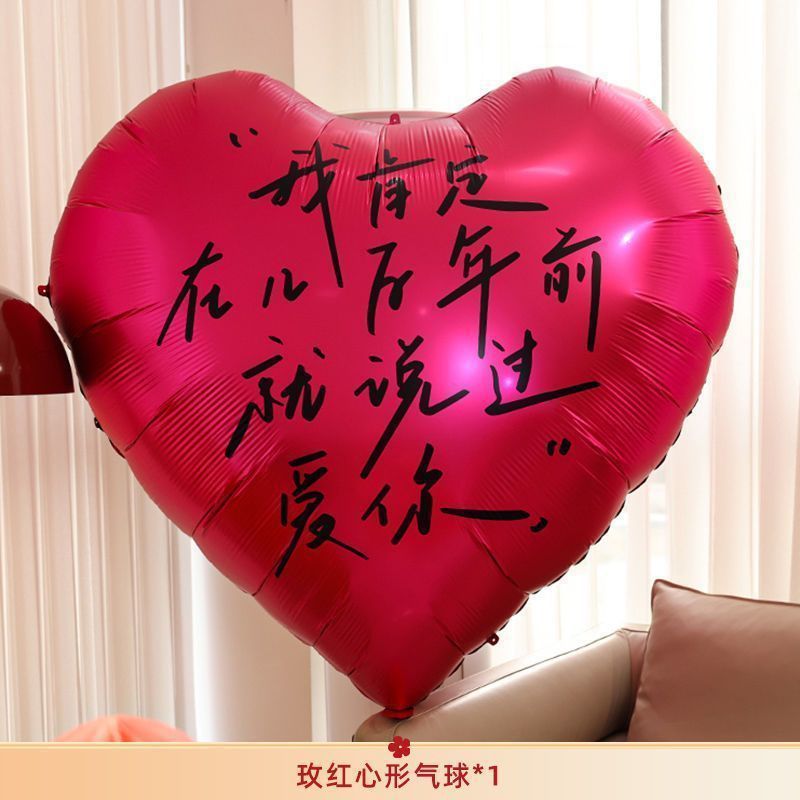 “我肯定
在几百年前
就说过
爱你，”
玫红心形气球*1